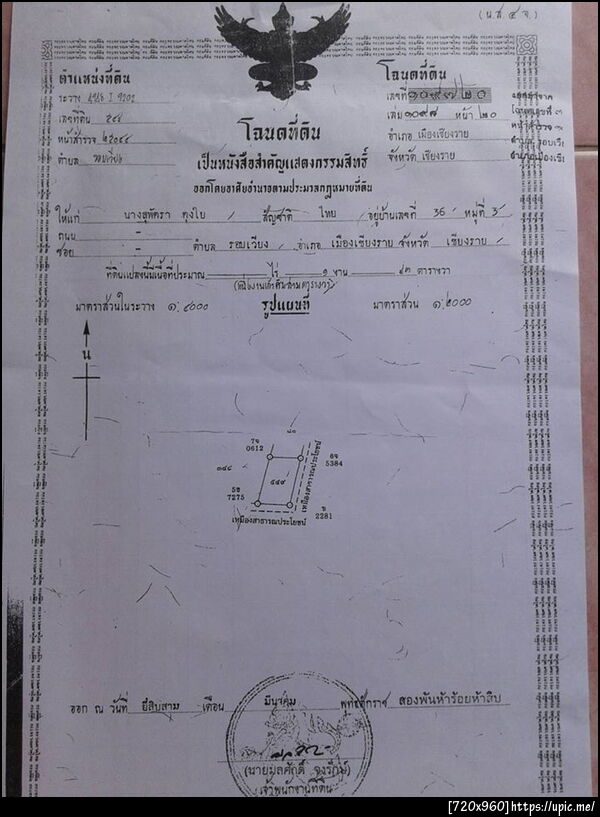 (น.ส. ๔ จ.)
ตำแหน่งที่ดิน
ระวาง
เลขที่ดิน
หน้าสำรวจ
ตำบล รอบเวียง
โฉนดที่ดิน
เลขที่
เล่ม ๑๐๙๘ หน้า ๒๐
อำเภอ เมืองเชียงราย
จังหวัด เชียงราย
โฉนดที่ดิน
เป็นหนังสือสำคัญแสดงกรรมสิทธิ์
ออกโดยอาศัยอำนาจตามประมวลกฎหมายที่ดิน
ให้แก่ นางสุพัตรา สัญชาติ ไทย อยู่บ้านเลขที่ 36 หมู่ที่ 3
ถนน -
ซอย - ตำบล รอบเวียง อำเภอ เมืองเชียงราย จังหวัด เชียงราย
ที่ดินแปลงนี้มีเนื้อที่ประมาณ ไร่ ๑ งาน ตารางวา
มาตราส่วนในระวาง ๑:๔๐๐๐ รูปแผนที่ มาตราส่วน ๑:๒๐๐๐
น
7จ
0612
6จ
5384
๕๔๙
5จ
7275
ข
2281
เหมืองสาธารณประโยชน์
เหมืองสาธารณประโยชน์
ออก ณ วันที่ ยี่สิบสาม เดือน มีนาคม พุทธศักราช สองพันห้าร้อยห้าสิบ
(นายมูลศักดิ์ จงรักษ์)
เจ้าพนักงานที่ดิน
[720x960]https://upic.me/